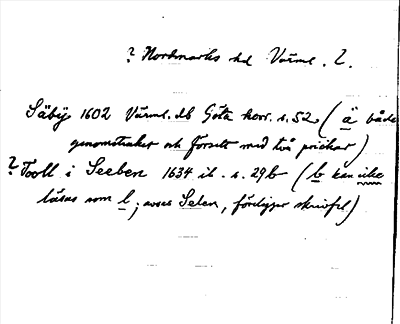 ? Nordmarks hd Värml. l.
Säby 1602 Värml. db Göta korr. s. 52 (ä både
genomstruket och försett med två prickar)
? Tooll i Seeben 1634 ib. s. 29b (b kan icke
läsas som l; avses Selen, föreligger skrivfel)